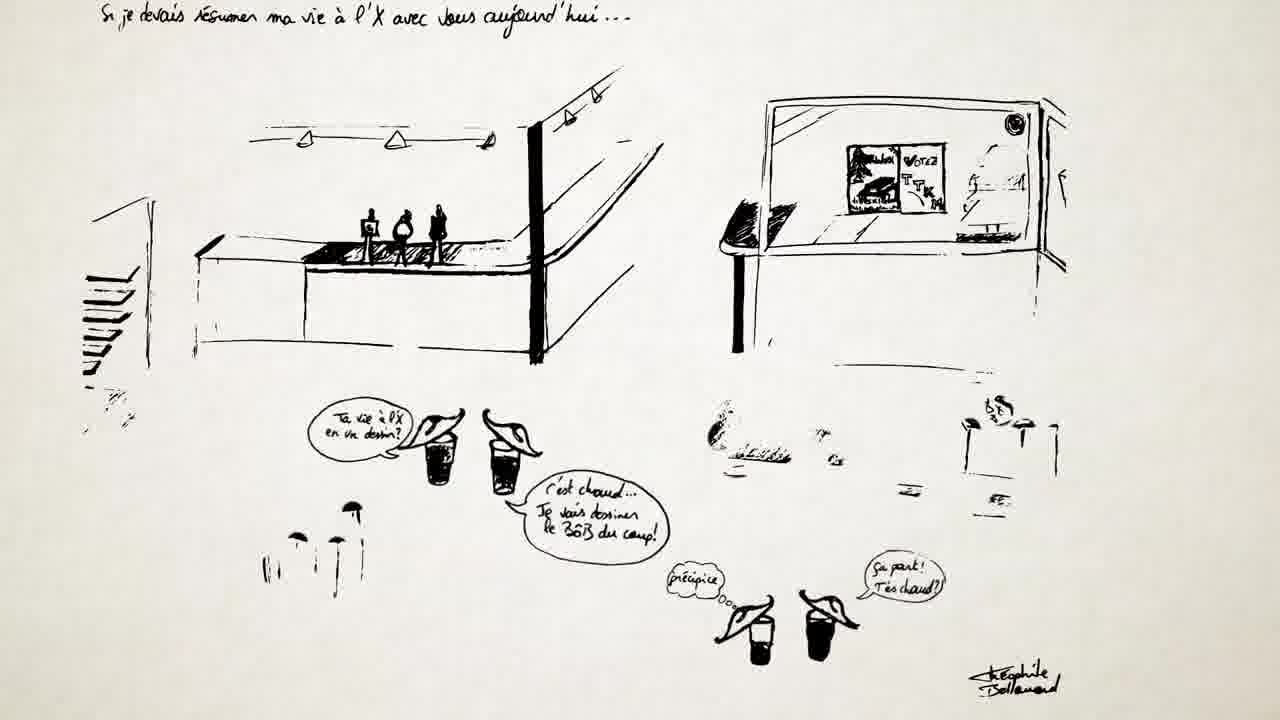 Si je devais résumer ma vie à l'X avec vous aujourd'hui...
VOTEZ
Ta vie à l'X
en un dessin?
C'est chaud...
Je vais dessiner
le BôB du coup!
précipice
Ça part!
T'es chaud?
Théophile